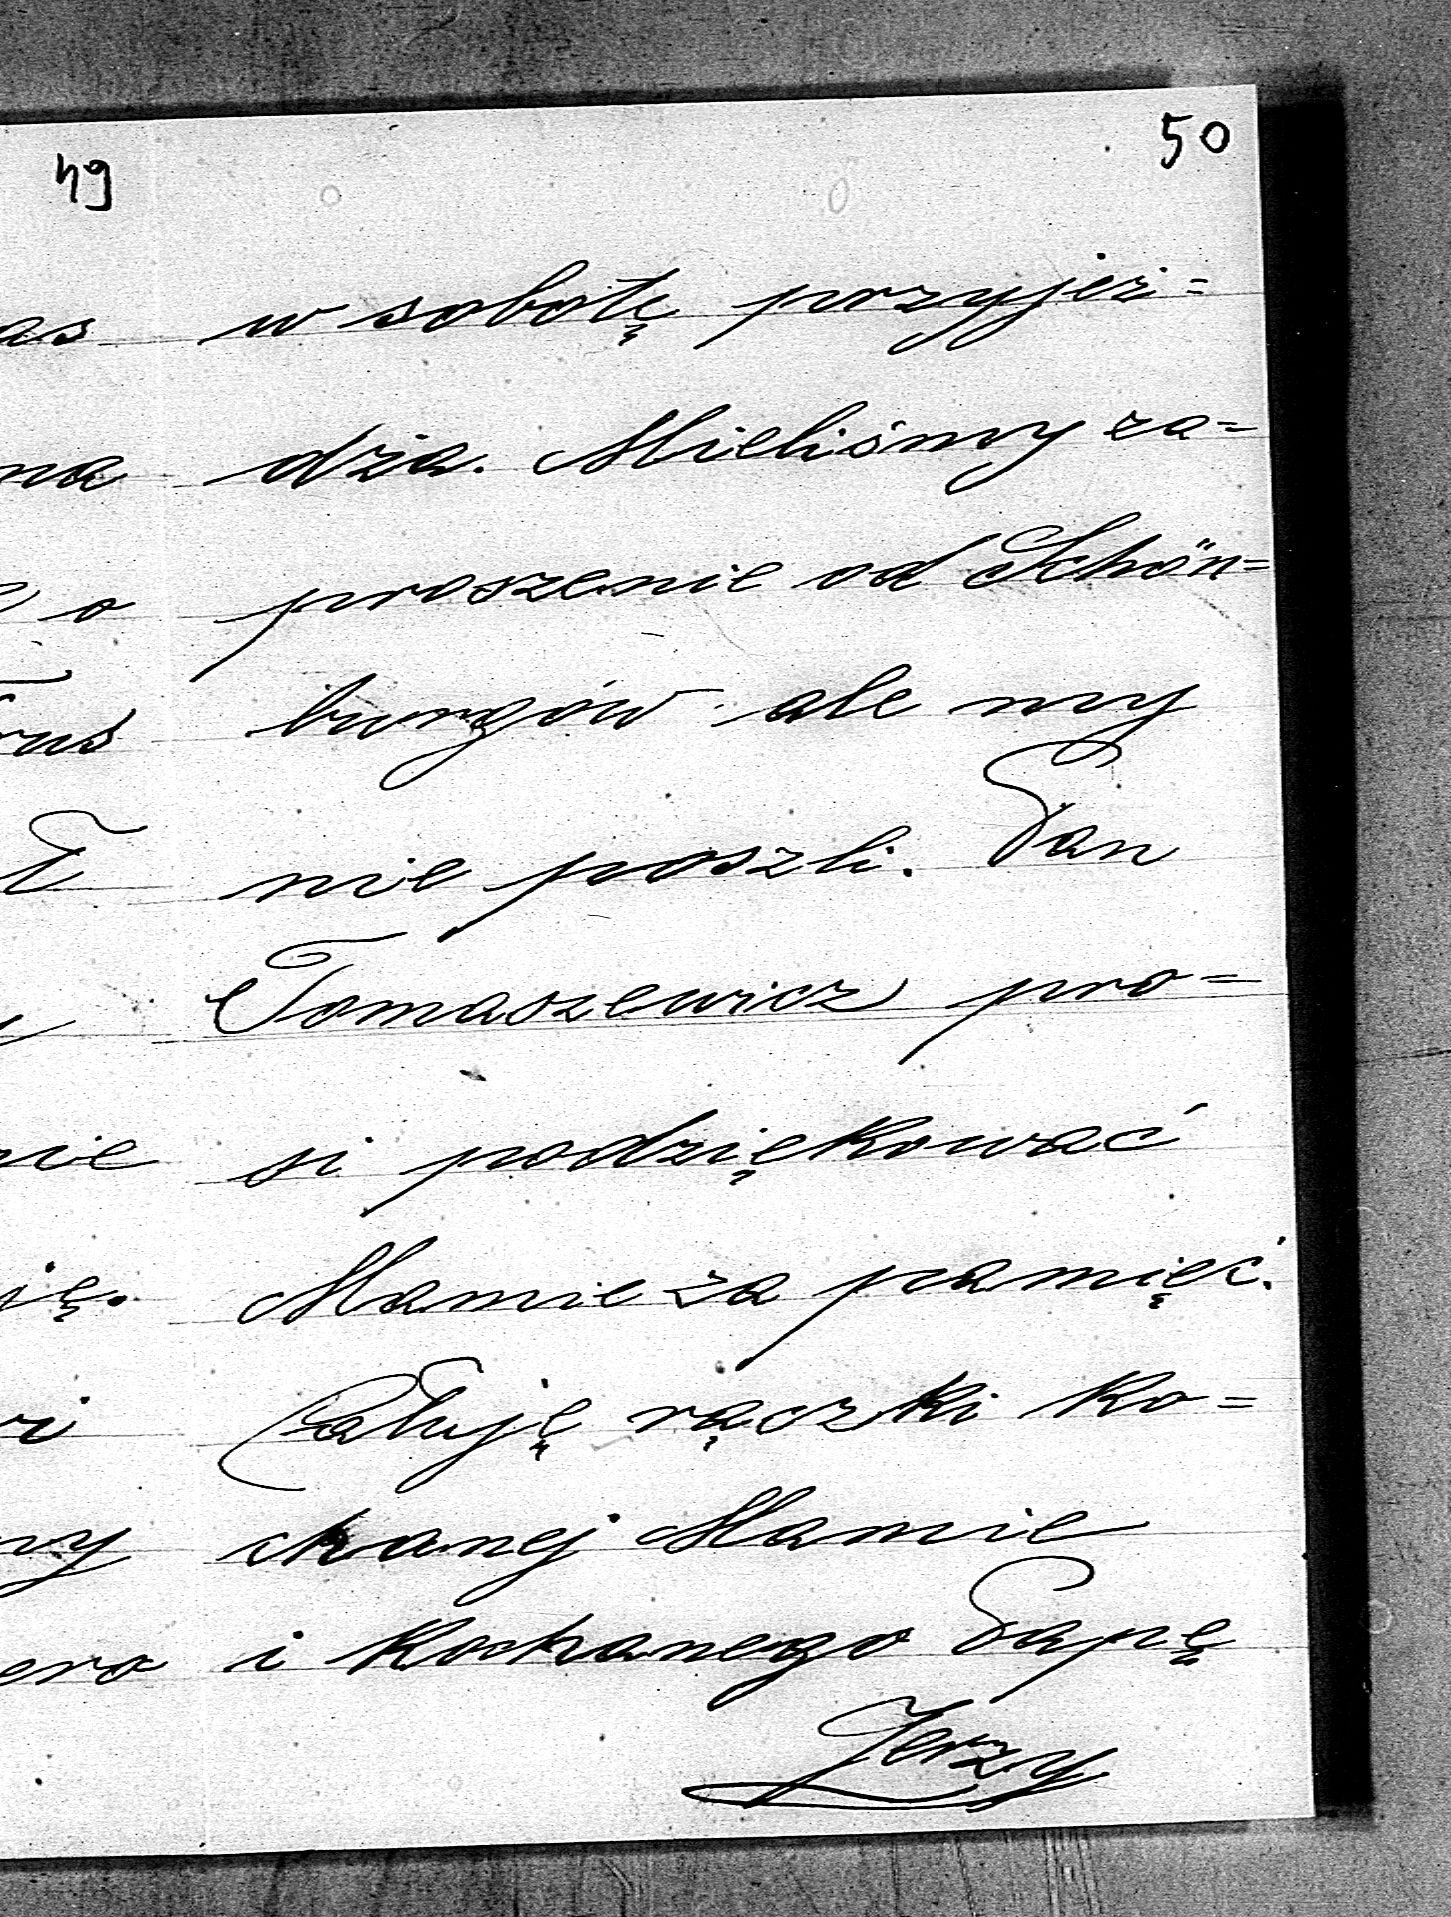 49
50
as
w sobotę przyjeż=
na
dża. Mieliśmy za=
o
proszenie od Schön=
rus
burgów ale my
nie poszli. Pan
Tomaszewicz pro=
nie
si podziękować
ję.
Mamie za pamięć.
ri
Całuję rączki ko=
ny
chanej Mamie
ero
i Kochanego Papę
Jerzy